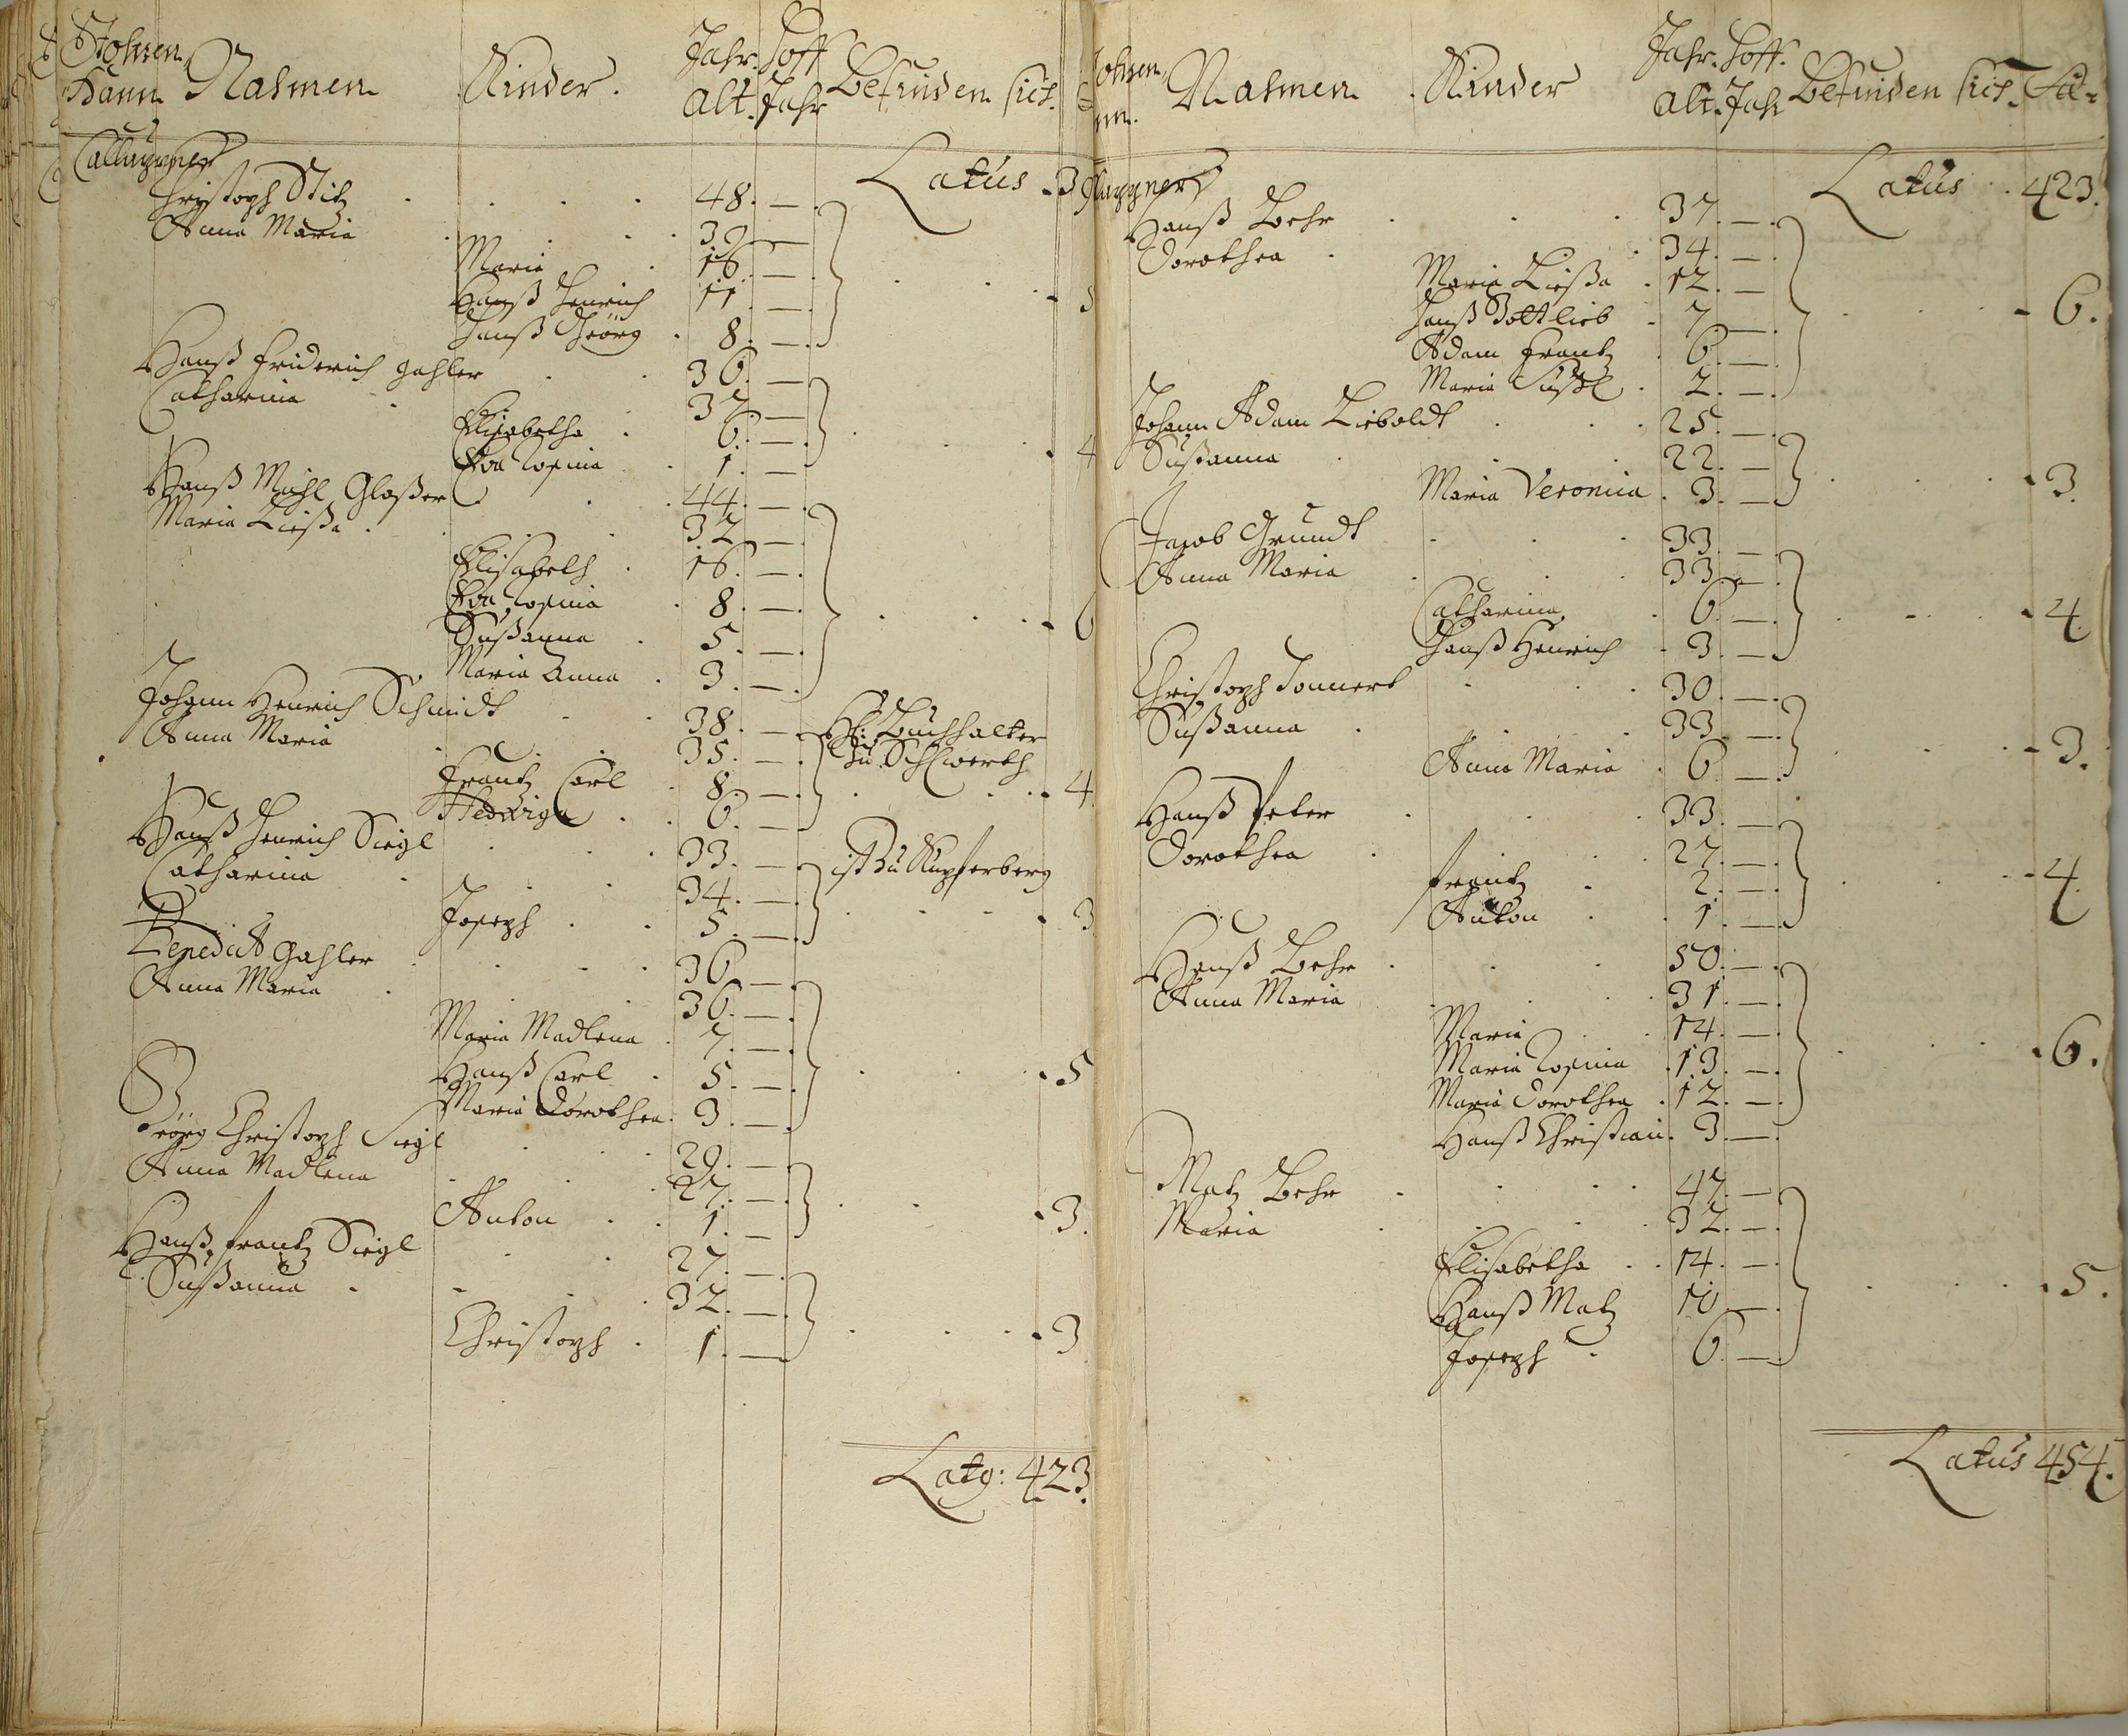 Stohren,
Hann. Nahmen Kinder. Jahr. Hoff
Alt. Jahr befinden sich.
Calluppner
Latus . 3
Christoph Stitz . . . . 48. —
Anna Maria . . . . 39 —
Maria . 16. —
Hanß Henrich 11. — . . . 5
Hanß Geörg . 8. —
Hanß Friderich Gahler . . 36. —
Catharina . 37. —
Elisabetha . 6. — . . 4
Eva Rosina . 1. —
Hanß Michl Glaßer . . 44. —
Maria Ließa . . . 32 —
Elisabeth . 16. —
Eva Rosina . 8. — . . . 6
Sußanna . 5. —
Maria Anna . 3. —
Johann Henrich Schmidt . . 38. — H: Buchhalter
Anna Maria . 35. — zu Schwerth
Frantz Carl . 8. — . . . 4.
Hedwiga . . 6. —
Hanß Henrich Siegl . . . 33. — ist zu Kupferberg
Catharina . . . 34. —
Joseph . . 5. — . . . 3
Benedict Gahler . . . . 36 —
Anna Maria . . . 36. —
Maria Madlena . 7. —
Hanß Carl . 5. — . . . 5
Maria Dorothea . 3. —
Geörg Christoph Siegl . . . 29. —
Anna Madlena . . . 27. —
Anton . . 1. — . . . 3.
Hanß Frantz Siegl . . 27. —
Sußanna . . . . 32. —
Christoph . 1. — . . . 3
Latg: 423.
Stohren,
nn. Nahmen . Kinder Jahr. Hoff.
Alt. Jahr befinden sich.
Latus . 423.
luppner
Hanß Behr . . . 37. —
Dorothea . . 34. —
Maria Ließa . 12. —
Hanß Gottlieb . 7. — . . . 6.
Adam Frantz . 6. —
Maria Sußl . 2. —
Johann Adam Lieboldt . . . 25. —
Sußanna . . . 22. —
Maria Veronica . 3. — . . . 3.
Jacob Grundt . . . 33. —
Anna Maria . . . 33. —
Catharina . 6. — . . . 4.
Hanß Henrich . 3. —
Christoph Donnert . . . 30. —
Sußanna . . . 33. —
Anna Maria . 6. — . . . 3.
Hanß Peter . . . 33. —
Dorothea . . . 27. —
Frantz . 2. — . . . 4.
Anton . . 1. —
Hanß Behr . . . 50. —
Anna Maria . . . 31. —
Maria . . 14. —
Maria Rosina . 13. — . . . 6.
Maria Dorothea . 12. —
Hanß Christian . 3. —
Matz Behr . . . . 47. —
Maria . . . 32. —
Elisabetha . . 14. —
Hanß Matz 10. — . . . 5.
Joseph . 6. —
Latus 454.